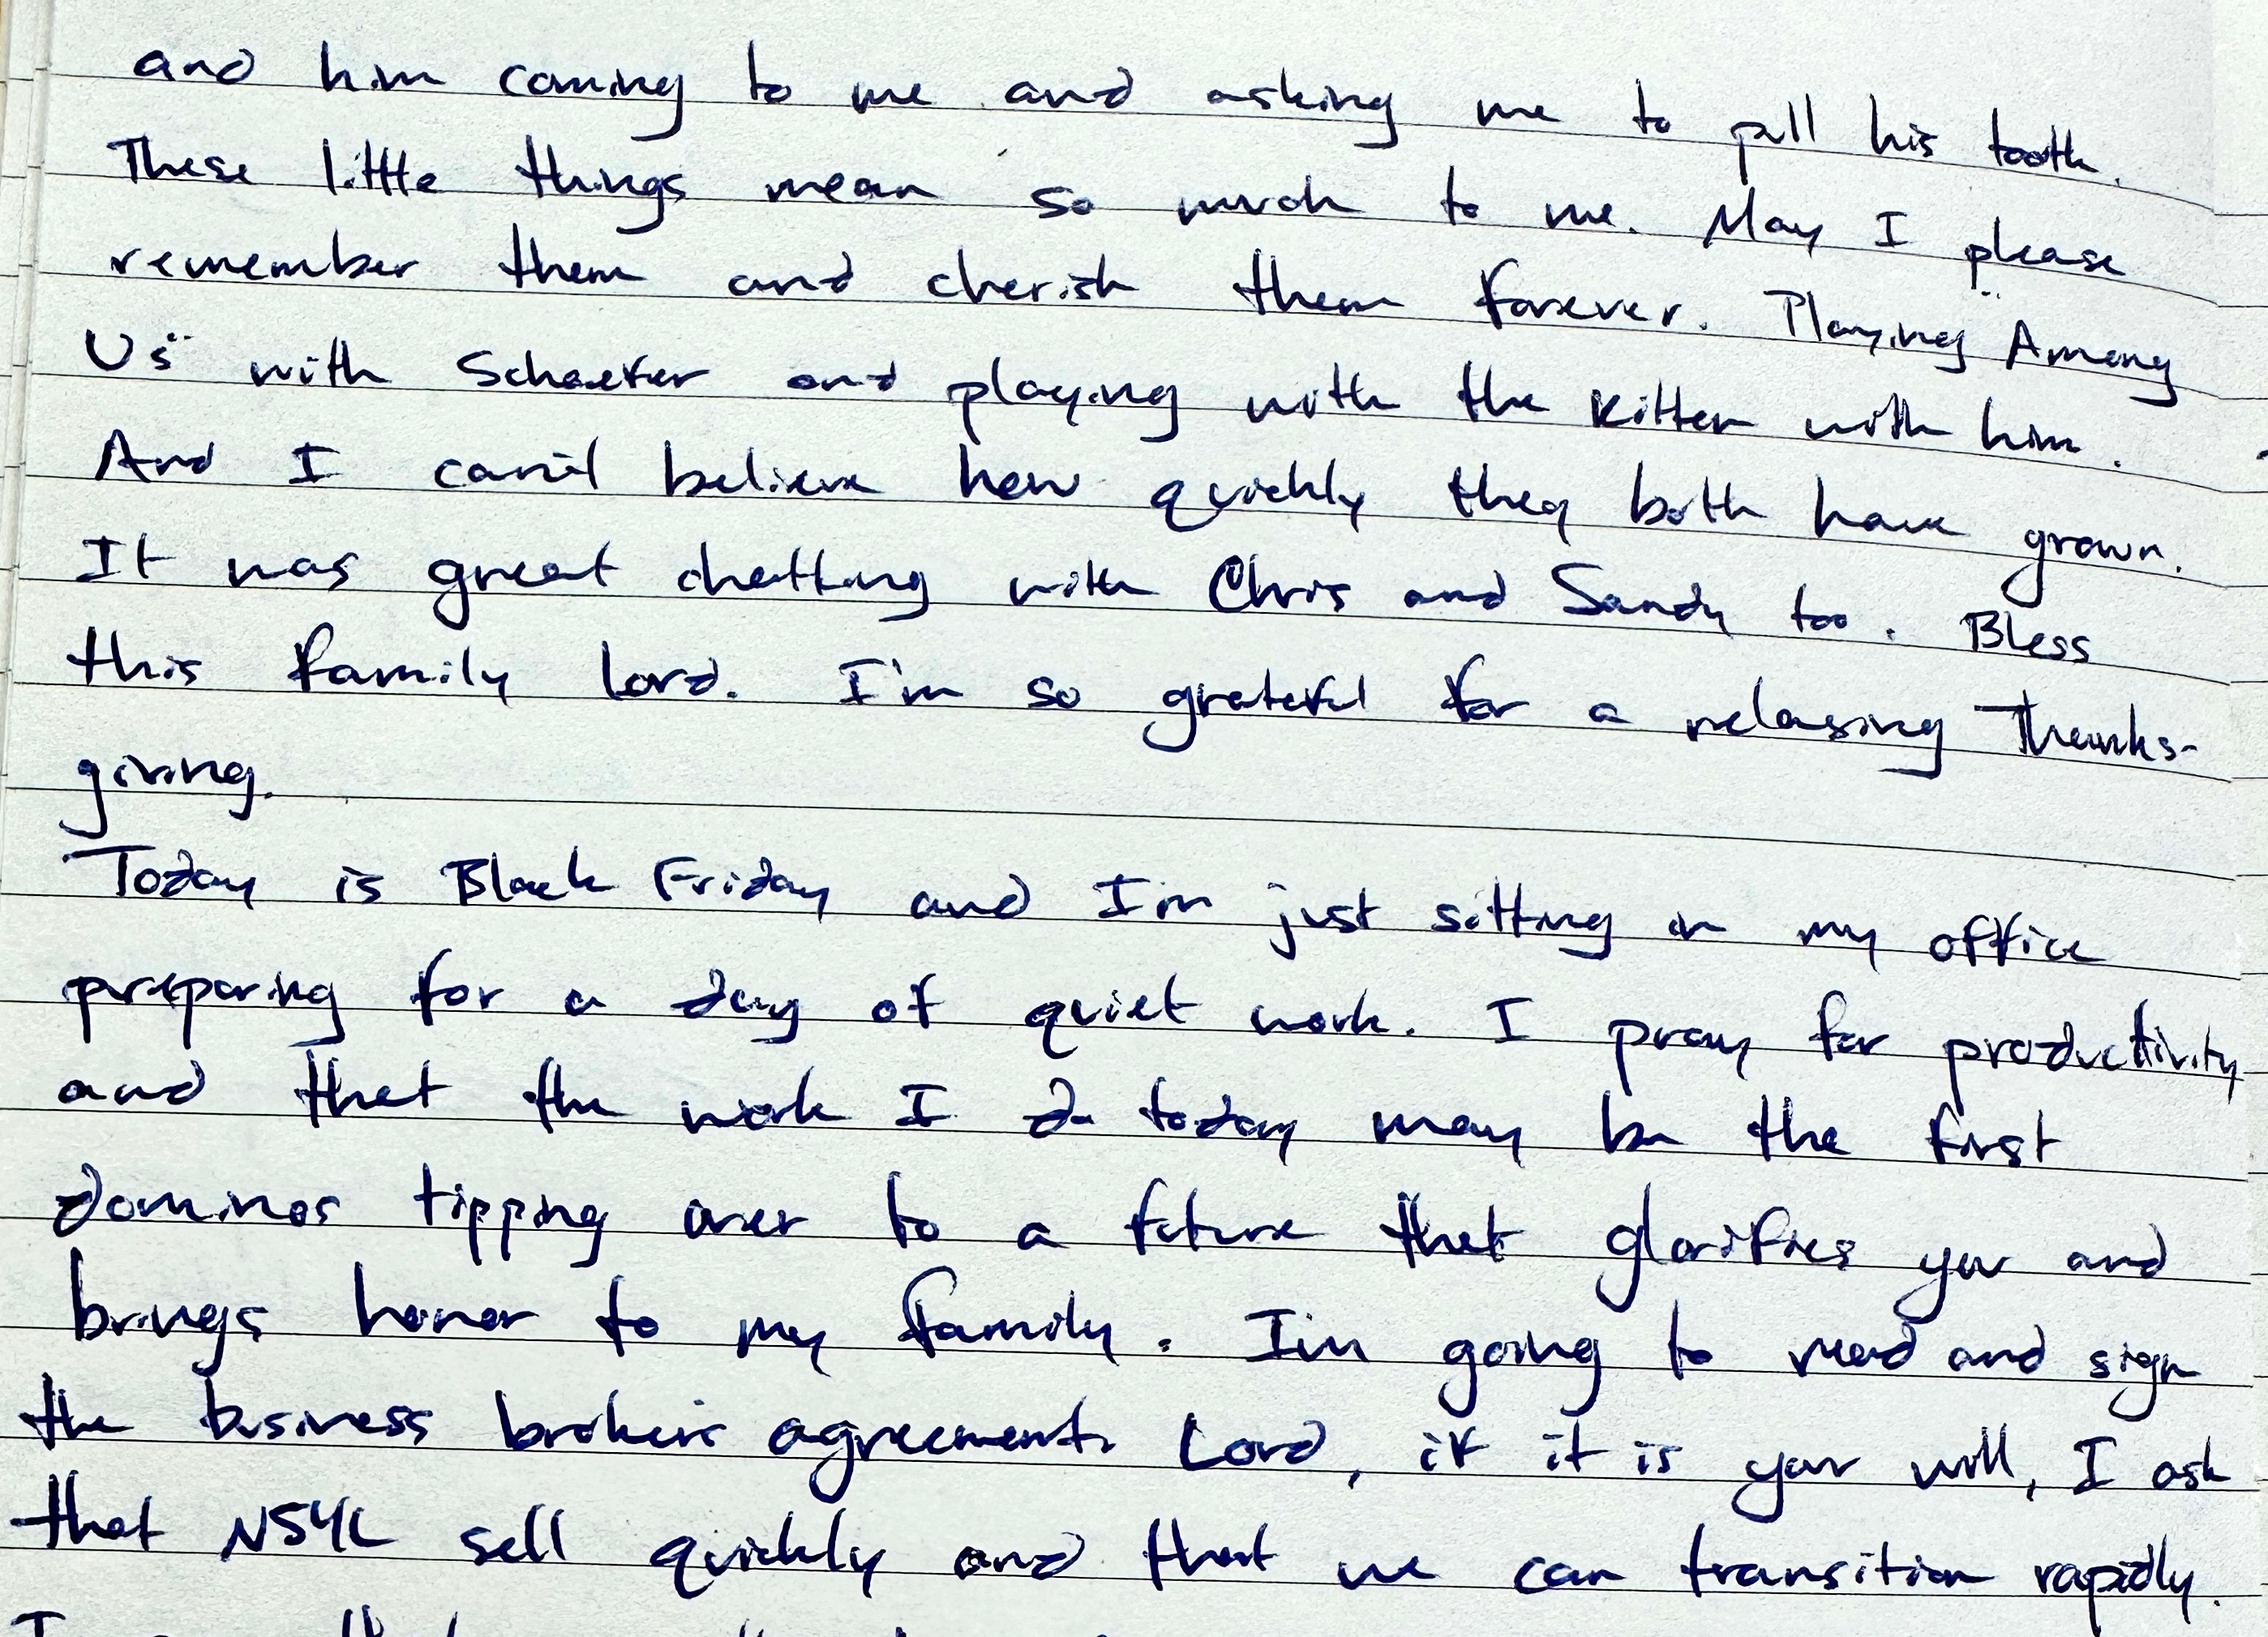 and him coming to me and asking me to pull his tooth.
These little things mean so much to me. May I please
remember them and cherish them forever. Playing "Among
Us" with Schaefer and playing with the kitten with him.
And I can't believe how quickly they both have grown.
It was great chatting with Chris and Sandy too. Bless
this family Lord. I'm so grateful for a relaxing Thanks-
giving.
Today is Black Friday and I'm just sitting in my office
preparing for a day of quiet work. I pray for productivity
and that the work I do today may be the first
dominos tipping over to a future that glorifies you and
brings honor to my family. I'm going to read and sign
the business broker's agreement. Lord, if it is your will, I ask
that NSYL sell quickly and that we can transition rapidly.